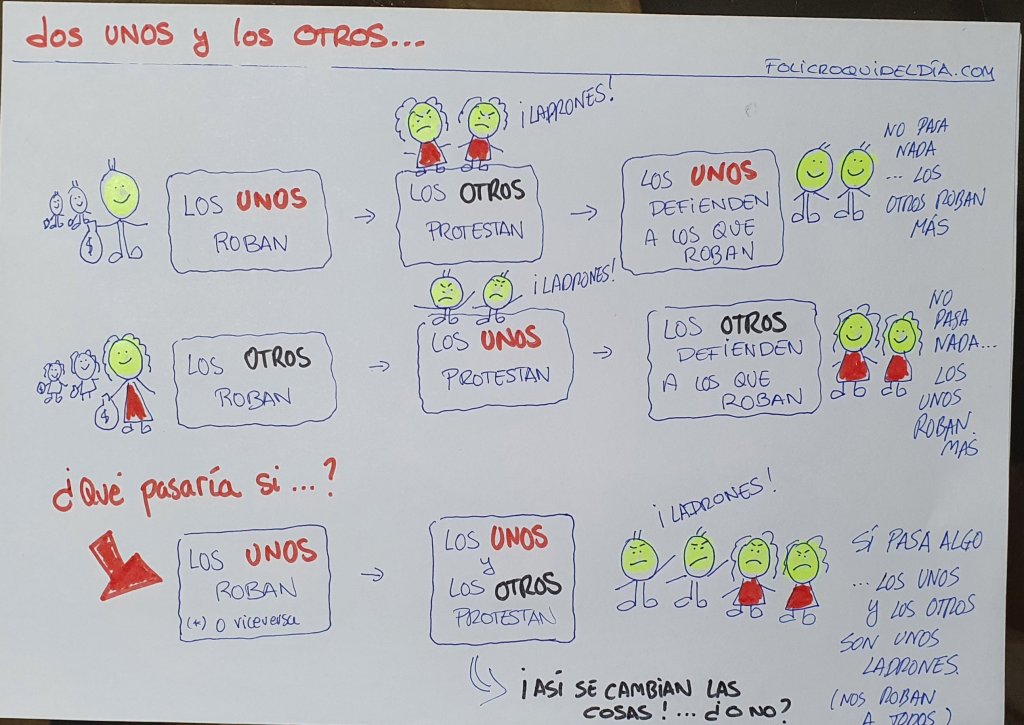 dos UNOS y los OTROS...
FOLICROQUIDELDÍA.COM
¡LADRONES!
LOS UNOS
ROBAN
LOS OTROS
PROTESTAN
LOS UNOS
DEFIENDEN
A LOS QUE
ROBAN
NO PASA
NADA
... LOS
OTROS ROBAN
MÁS
$
¡LADRONES!
LOS OTROS
ROBAN
LOS UNOS
PROTESTAN
LOS OTROS
DEFIENDEN
A LOS QUE
ROBAN
NO
PASA
NADA...
LOS
UNOS
ROBAN
MAS
$
¿Qué pasaría si...?
¡LADRONES!
LOS UNOS
ROBAN
(*) O viceversa
LOS UNOS
y
LOS OTROS
PROTESTAN
SÍ PASA ALGO
... LOS UNOS
Y LOS OTROS
SON UNOS
LADRONES.
(NOS ROBAN
A TODOS)
¡ASÍ SE CAMBIAN LAS
COSAS!... ¿O NO?